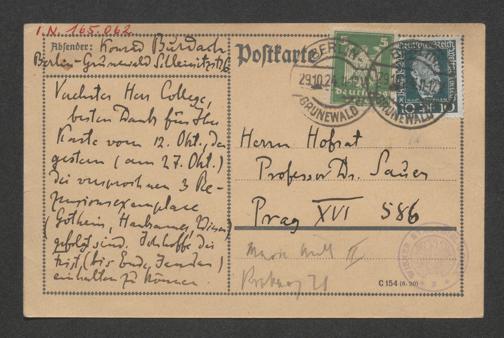 I.N. 165.062
Absender: Konrad Burdach
Berlin-Grunewald Schleinitzstr. 6
Postkarte
BERLIN
29.10.24
GRUNEWALD
5
Deutsches Reich
10 10
Verehrter Herr College,
besten Dank für Ihre
Karte vom 12. Okt., der
gestern (am 27. Okt.)
die versprochenen 3 Re-
zensionsexemplare
(Gothein,
gefolgt sind. Ich hoffe die
Frist (bis Ende Januar)
einhalten zu können.
Herrn Hofrat
Professor Dr. Sauer
Prag XVI 586
C 154 (6. 20)
WIENER